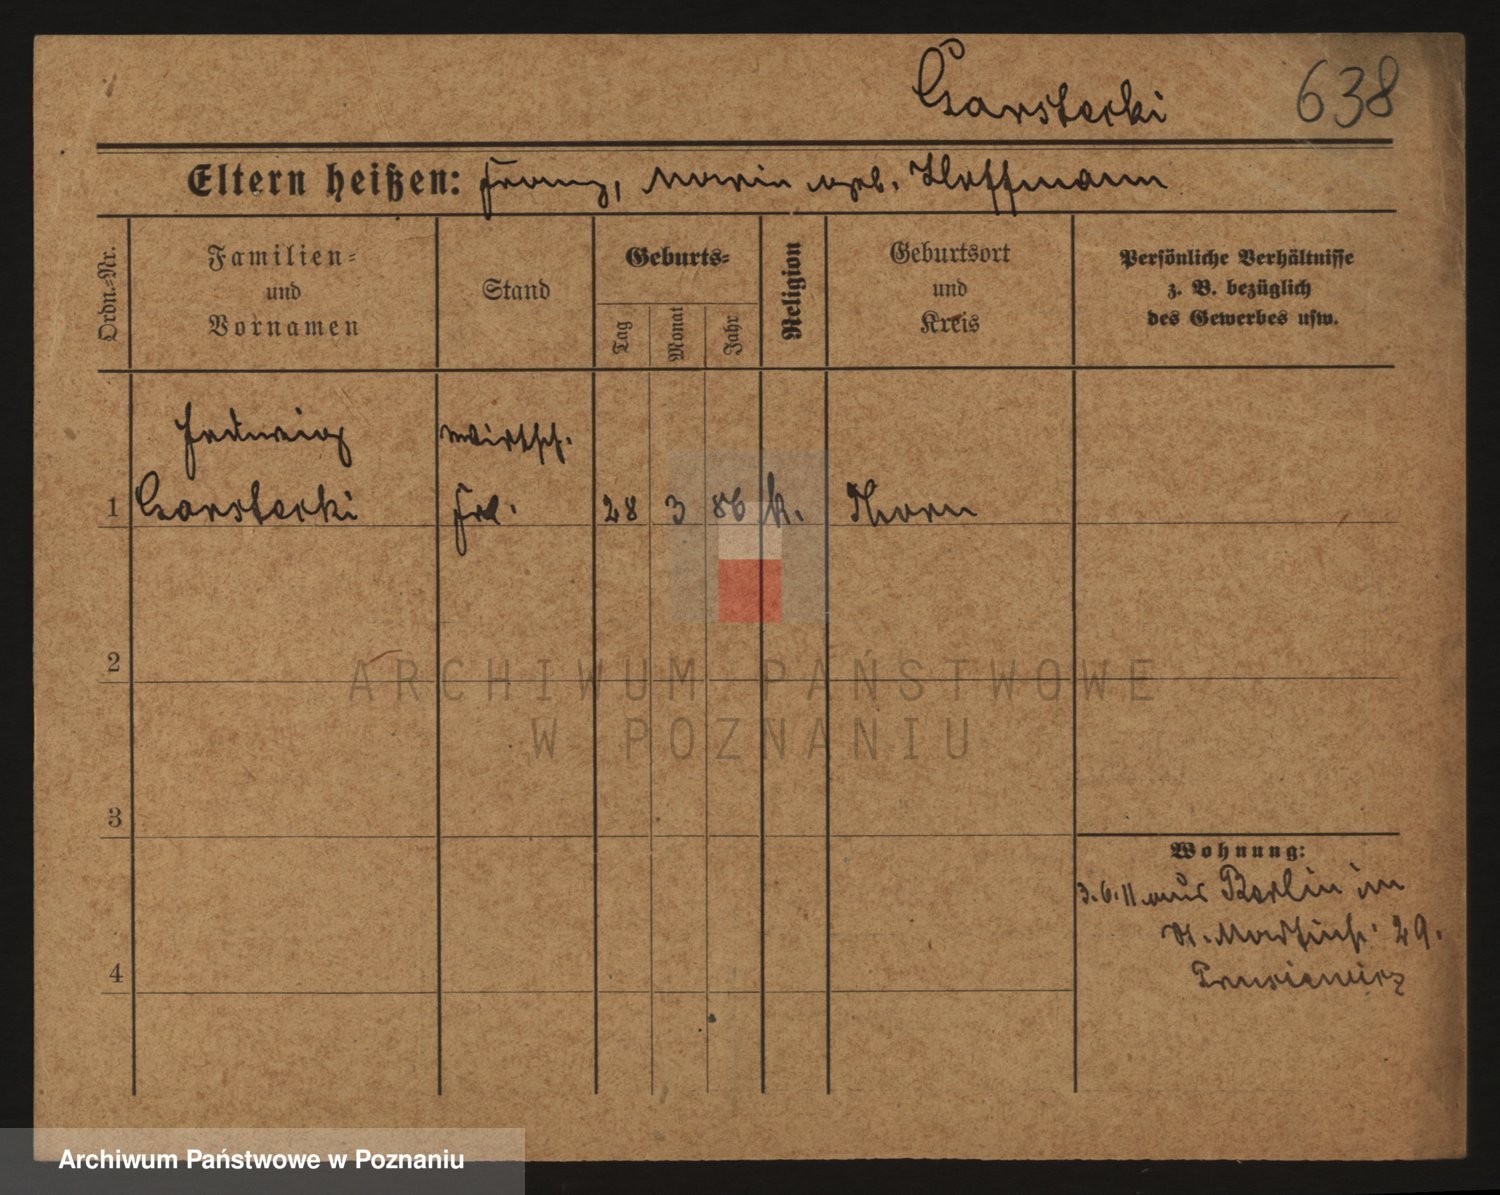 Garstecki 638
Eltern heißen: Franz, Maria geb. Hoffmann
Ordn.-Nr.
Familien-
und
Vornamen
Stand
Geburts-
Tag
Monat
Jahr
Religion
Geburtsort
und
Kreis
Persönliche Verhältnisse
z. B. bezüglich
des Gewerbes usw.
Hedwig wirtsch.
1 Garstecki Frl. 28 3 86 k. Thorn
2
3
4
Wohnung:
3.6.11 aus Berlin in
St. Martinstr. 29.
ARCHIWUM PAŃSTWOWE
W POZNANIU
Archiwum Państwowe w Poznaniu